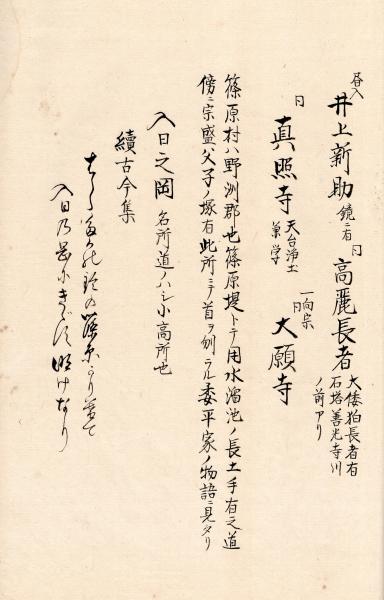 昼入
井上新助 鏡ニ有
同 高麗長者 大倭狛長者有
石塔善光寺川
ノ前アリ
同 真照寺 天台浄土
兼学
一向宗
同 大願寺
篠原村ハ野洲郡也篠原堤トテ用水溜池ノ長土手有之道
傍ニ宗盛父子ノ塚有此所ニテ首ヲ刎ラル委平家ノ物語ニ見タリ
入日之岡 名所道ノハシ小高所也
續古今集
篠原
入日乃岡にきゞす鳴けなり